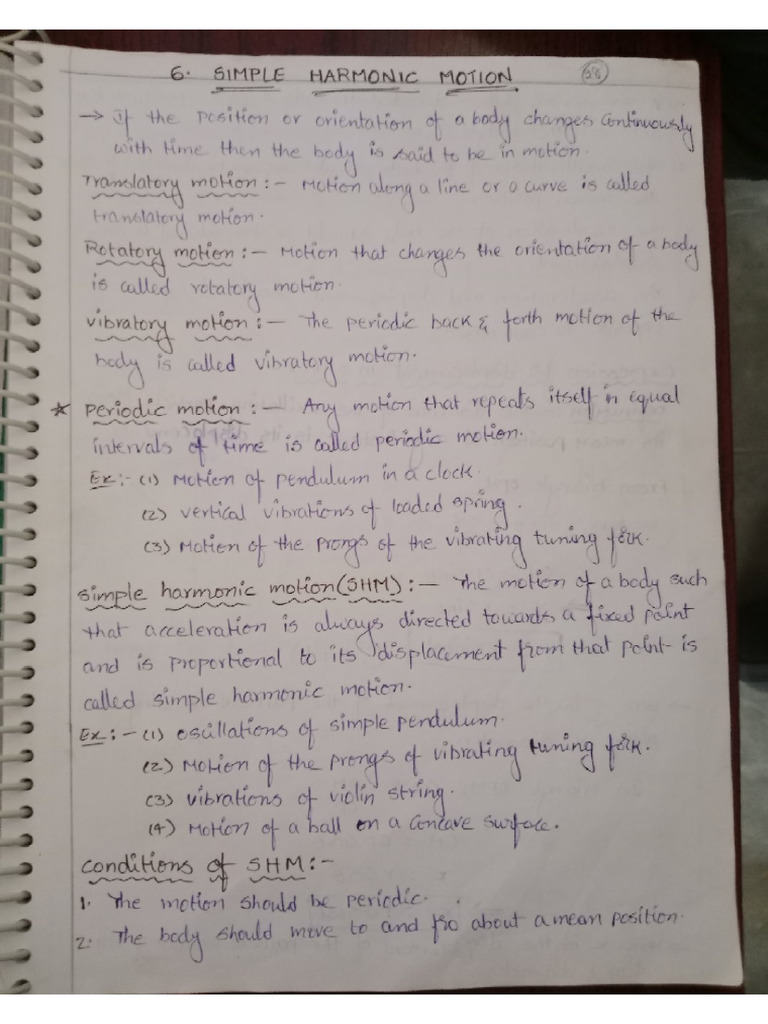 6. SIMPLE HARMONIC MOTION 58
→ If the position or orientation of a body changes continuously
with time then the body is said to be in motion.
Translatory motion :- Motion along a line or a curve is called
translatory motion.
Rotatory motion :- Motion that changes the orientation of a body
is called rotatory motion.
vibratory motion :- The periodic back & forth motion of the
body is called vibratory motion.
* Periodic motion :- Any motion that repeats itself in equal
intervals of time is called periodic motion.
Ex:- (1) Motion of pendulum in a clock.
(2) vertical vibrations of loaded spring.
(3) Motion of the prongs of the vibrating tuning fork.
simple harmonic motion(SHM) :- The motion of a body such
that acceleration is always directed towards a fixed point
and is proportional to its displacement from that point is
called simple harmonic motion.
Ex:- (1) oscillations of simple pendulum.
(2) Motion of the prongs of vibrating tuning fork.
(3) vibrations of violin string.
(4) Motion of a ball on a concave surface.
conditions of SHM:-
1. The motion should be periodic.
2. The body should move to and fro about a mean position.